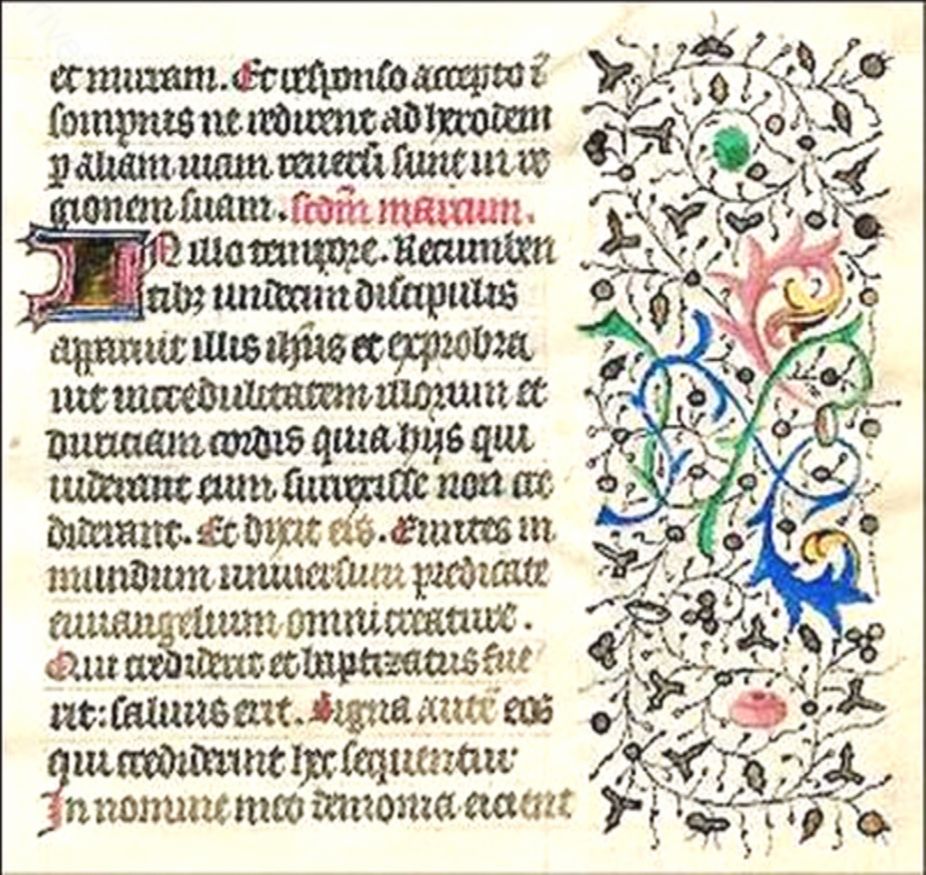 et mirram. Et responso accepto ī
sompnis ne redirent ad herodem
ꝑ aliam uiam reuersi sunt in re
gionem suam. scdm marcum.
IN illo tempore. Recumben
tibꝫ undecim discipulis
apparuit illis ihūs et exprobra
uit incredulitatem illorum et
duriciam cordis quia hijs qui
uiderant eum surrexisse non cre
diderant. Et dixit eis. Euntes in
mundum uniuersum predicate
euuangelium omni creature.
Qui crediderit et baptizatus fue
rit: saluus erit. Signa autē eos
qui crediderint hec sequentur
In nomine meo demonia eicient